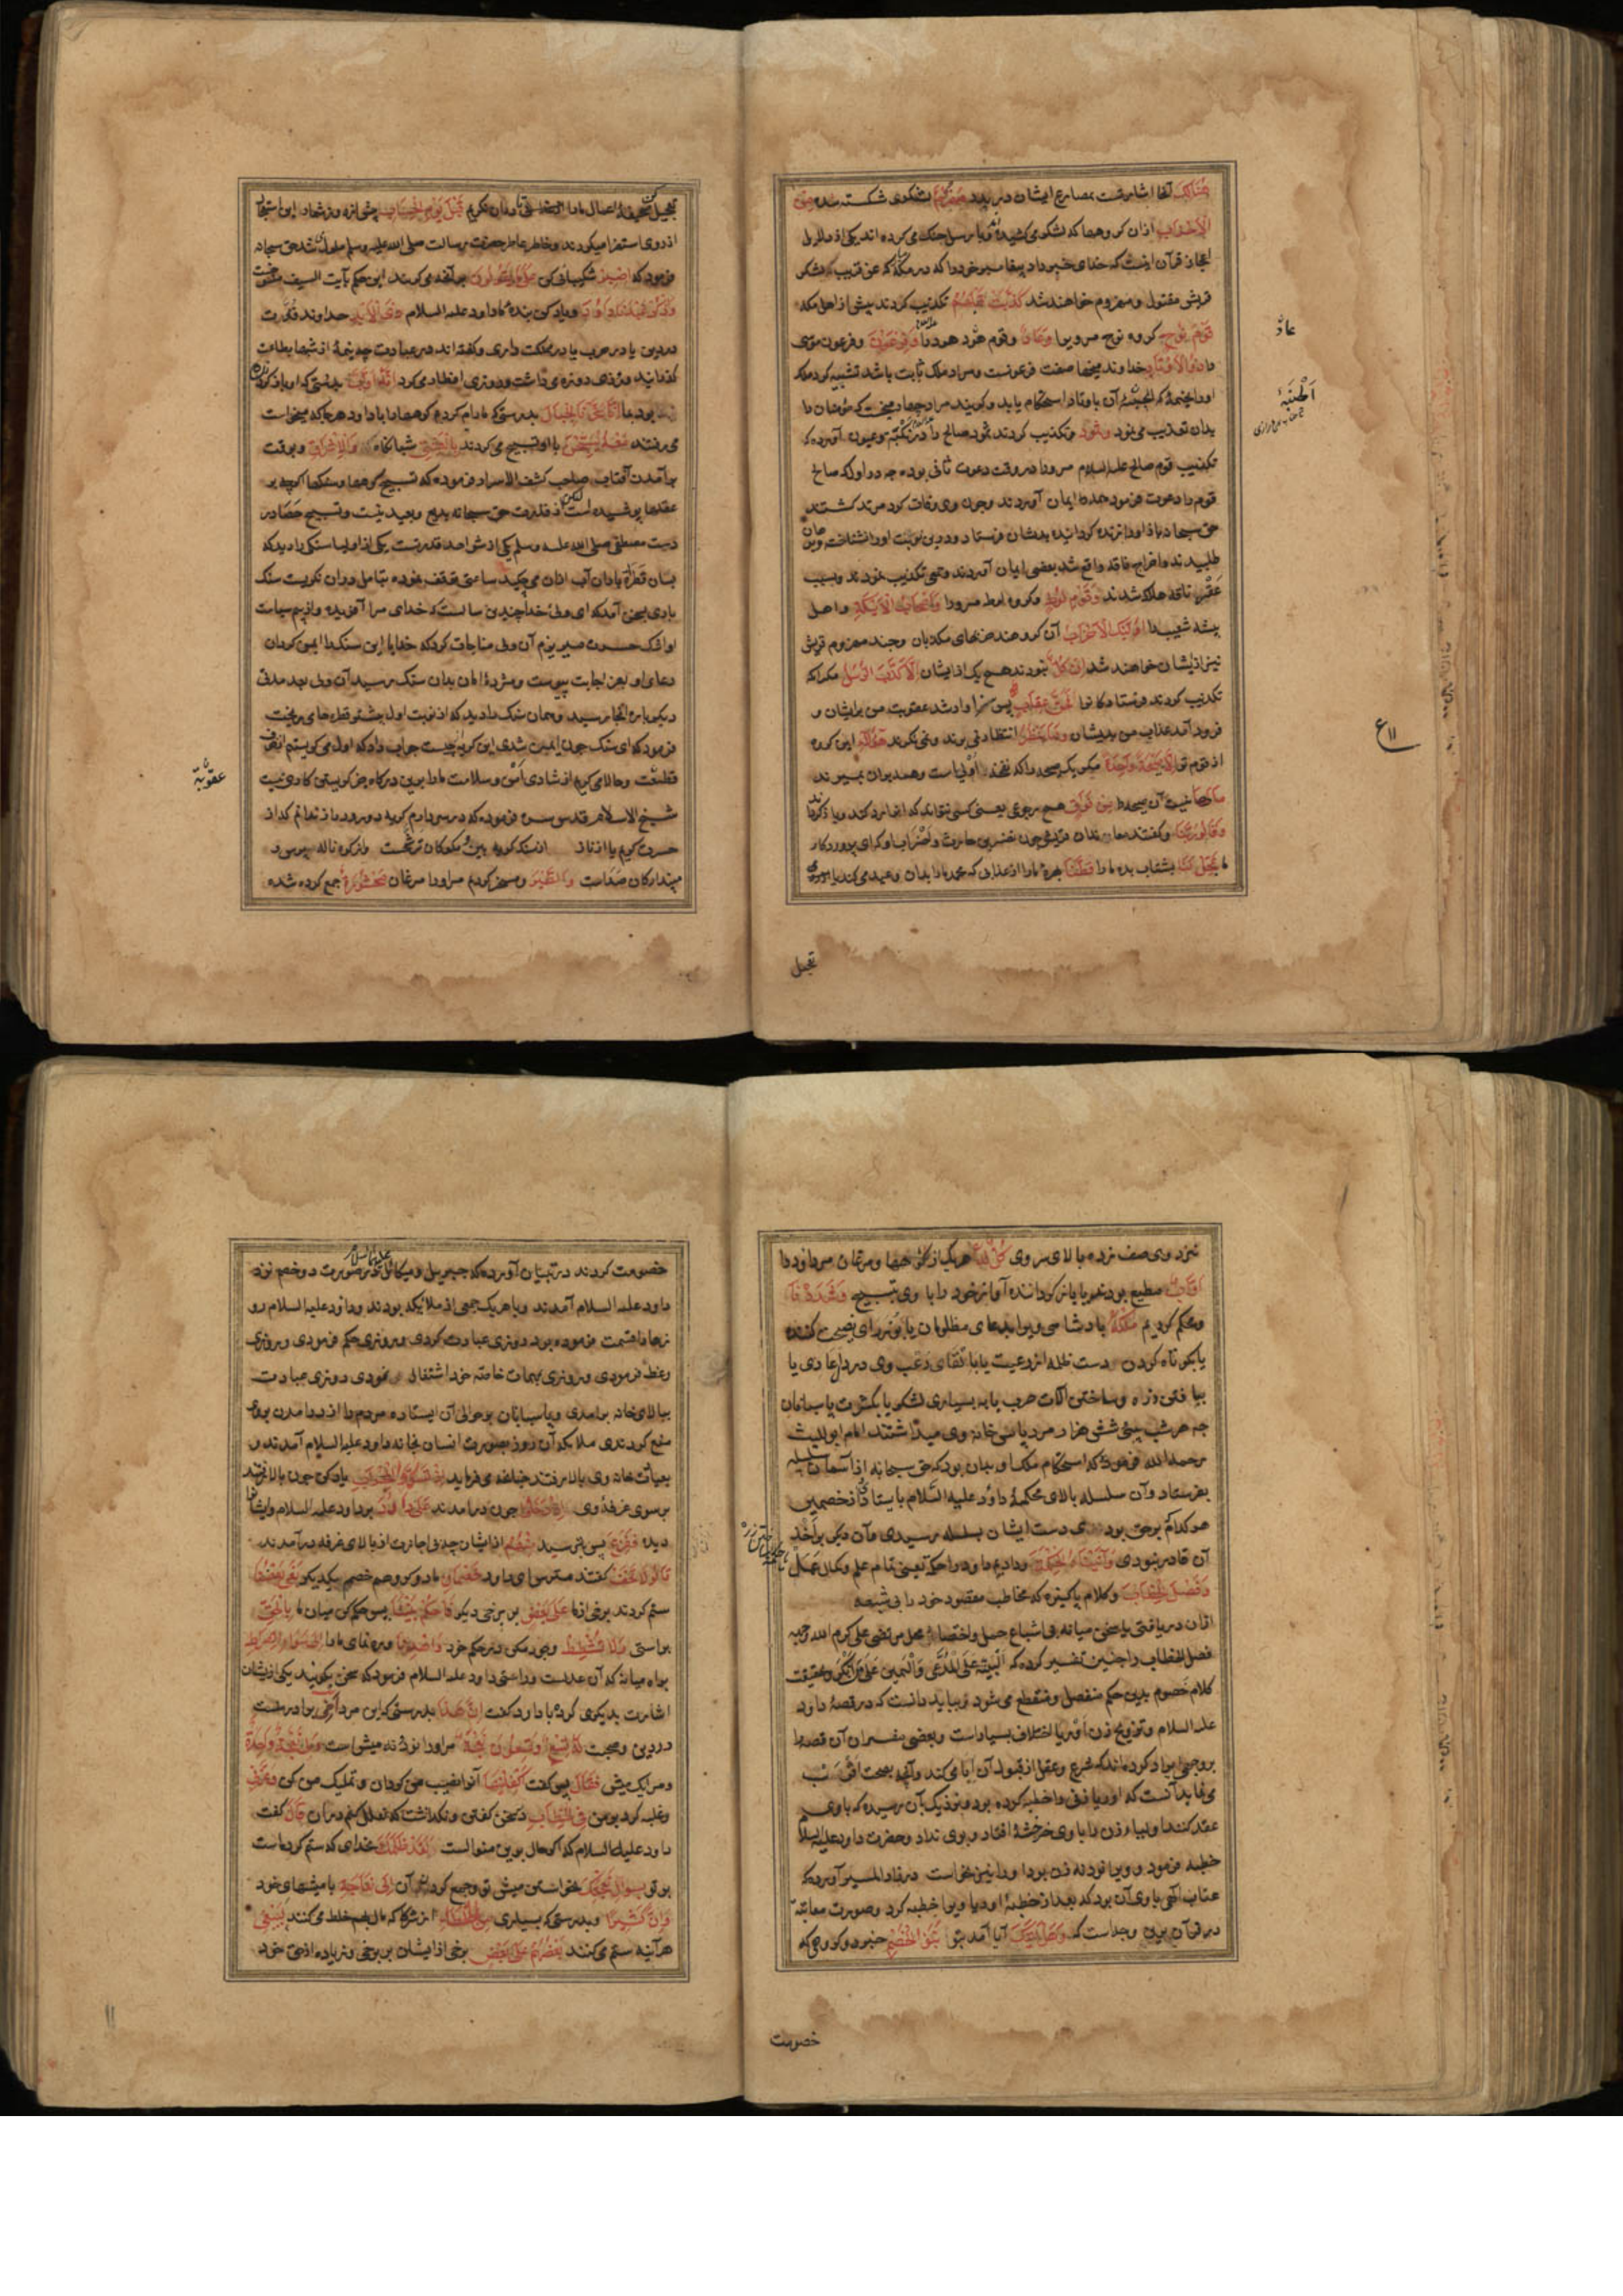 هُنَالِكَ آنجا اشارتست بمصارع ایشان در بدر مَهْزُومٌ لشکری شکسته شده مِنَ
الْأَحْزَابِ ازان گروهها که لشکر می کشیدند و با رسل جنک می کرده اند یکی از دلایل
اعجاز قرآن اینست که خدای خبر داد پیغامبر خود را که در مکه که عن قریب که لشکر
قریش مقتول و مهزوم خواهند شد كَذَّبَتْ قَبْلَهُمْ تکذیب کردند پیش از اهل مکه
قَوْمُ نُوحٍ کروه نوح مر ویرا وَعَادٌ وقوم هود هود را وَفِرْعَوْنُ وفرعون موسی
را ذُو الْأَوْتَادِ خداوند میخها صفت فرعونست ومراد ملک ثابت باشد تشبیه کرد ملک
بدان تعذیب می نمود وَثَمُودُ وتکذیب کردند ثمود صالح را
تکذیب قوم صالح علیه السلام مر ورا در وقت دعوت ثانی بوده چه در اول که صالح
قوم را دعوت فرمود همه ایمان آوردند وچون وی وفات کرد مرتد کشتند
حق سبحانه باز او را زنده کردانیده بدیشان فرستاد ودرین نوبت او را نشناخته
طلبیدند واخراج ناقه واقع شد بعضی ایمان آوردند وجمعی تکذیب نمودند وبسبب
عقر ناقه هلاک شدند وَقَوْمُ لُوطٍ وکروه لوط مر ورا وَأَصْحَابُ الْأَيْكَةِ واهل
بیشه شعیب را أُولَئِكَ الْأَحْزَابُ آن کروهند
نیز ازیشان خواهند شد إِنْ كُلٌّ نبودند هیچ یک از ایشان إِلَّا كَذَّبَ الرُّسُلَ مکر انکه
تکذیب کردند فرستادکانرا فَحَقَّ عِقَابِ پس سزاوار شد عقوبت من برایشان و
فرود آمد عذاب من بدیشان وَمَا يَنْظُرُ انتظار نمی برند ونمی نکرند هَؤُلَاءِ این کروه
از قوم تو إِلَّا صَيْحَةً وَاحِدَةً مکر یک صیحه را که نفخه اولی است وهمه بدان بمیرند
مَا لَهَا نیست آن صیحه را مِنْ فَوَاقٍ هیچ رجوعی یعنی کسی نتواند که
وَقَالُوا رَبَّنَا وکفتند معاندان قریش چون نضر بن حارث واضراب او که ای پروردکار
ما عَجِّلْ لَنَا بشتاب بده ما را قِطَّنَا بهره ما را از عذابی که محمد ما را بدان وعید می کند
تعجیل
عاد
ع ۱۱
تعجیل کن صحیفه اعمال ما را تا بدان نکریم قَبْلَ يَوْمِ الْحِسَابِ پیش از روز شمار
از روی استهزا میکردند وخاطر عاطر حضرت رسالت صلی الله علیه وسلم ملول می شد حق سبحانه
فرمود که اصْبِرْ شکیبائی کن عَلَى مَا يَقُولُونَ بر آنچه می کویند این حکم بآیت السیف منسوخست
وَاذْكُرْ عَبْدَنَا دَاوُودَ ویاد کن بنده ما داود علیه السلام ذَا الْأَيْدِ خداوند قوت
در دین یا در حرب یا در مملکت داری وکفته اند در عبادت
کذرانید وروزی روزه می داشت وروزی افطار می کرد إِنَّهُ أَوَّابٌ بدرستی که او بازکردنده
بود بما إِنَّا سَخَّرْنَا الْجِبَالَ بدرستی که ما رام کردیم کوهها را با داود هرجا که میخواست
می رفتند مَعَهُ يُسَبِّحْنَ با او تسبیح می کردند بِالْعَشِيِّ شبانکاه وَالْإِشْرَاقِ وبوقت
برآمدن آفتاب صاحب کشف الاسرار فرموده که تسبیح کوهها وسنکها اکرچه بر
عقلها پوشیده است لیکن از قدرت حق سبحانه بدیع وبعید نیست وتسبیح حصا در
دست مصطفی صلی الله علیه وسلم یکی ازش اهد قدرتست یکی از اولیا سنکی را دید که
بسان قطره باران آب ازان می چکید ساعتی توقف نموده بتامل دران نکریست سنک
با وی بسخن آمد که ای ولی خدا چندین سالست که خدای مرا آفریده واز بیم سیاست
او اشک حسرت میریزم آن ولی مناجات کرد که خدایا این سنک را ایمن کردان
دعای او بعز اجابت پیوست ومژده امان بدان سنک رسید آن ولی بعد مدتی
دیکر باره آنجا رسید وهمان سنک را دید که از نوبت اول بیشتر قطرهای میریخت
فرمود که ای سنک چون ایمن شدی این کریه چیست جواب داد که اول می کریستم از خوف
عقوبت وحالا می کریم از شادی امن وسلامت ما را برین درکاه جز کریستن کاری نیست
شیخ الاسلام قدس سره فرموده که در سر دارم کریه دور ودراز ندانم که از
حسرت کریم یا از ناز
وَالطَّيْرَ ومسخر کردیم مر او را مرغان مَحْشُورَةً جمع کرده شده
عقوبة
نزد وی صف زده بالای سر وی كُلٌّ لَهُ هر یک از کوهها ومرغان مر داود را
أَوَّابٌ مطیع بودند یا باز کرداننده آواز خود را با وی تسبیح وَشَدَدْنَا
ومحکم کردیم مُلْكَهُ پادشاهی ویرا بدعای مظلومان یا بوزرای نصیحت کننده
یا بکوتاه کردن دست ظلمه از رعیت یا بالقای رعب وی در دل اعادی یا
ببافتن زره وساختن آلات حرب یا به بسیاری لشکر یا بکثرت پاسبانان
چه هر شب سی وشش هزار مرد پاس خانه وی میداشتند امام ابو اللیث
رحمه الله فرمود که استحکام ملک او بدان بود که حق سبحانه از آسمان سلسله
بفرستاد وآن سلسله بالای محکمه داود علیه السلام بایستاد از خصمین
هر کدام بر حق بودی دست ایشان بسلسله رسیدی وآن دیکر بر اخذ
آن قادر نبودی وَآتَيْنَاهُ الْحِكْمَةَ ودادیم داود را حکمة یعنی تمام علم وکمال عمل
وَفَصْلَ الْخِطَابِ وکلام پاکیزه که مخاطب مقصود خود را بی شبهه
ازان دریافتی یا سخن میانه بی اشباع ممل واختصار مخل مرتضی علی کرم الله وجهه
فصل الخطاب را چنین تفسیر کرده که البینة علی المدعی والیمین علی من انکر وبحقیقت
کلام خصوم بدین حکم منفصل ومنقطع می شود بباید دانست که در قصه داود
علیه السلام وتزویج زن اوریا اختلاف بسیار است وبعضی مفسران آن قصه را
بروجهی ایراد کرده اند که شرع وعقل از قبول آن ابا می کند وآنچه بصحت اقرب
می نماید آنست که اوریا زنی را خطبه کرده بود ونزدیک بآن رسیده که با وی
عقد کنند اولیاء زن را با وی خرخشه افتاد وبوی نداد وحضرت داود علیه السلام
خطبه فرمود وویرا نود نه زن بود اورا نیز بخواست در زاد المسیر آورده که
عتاب الهی با وی آن بود که بعد از خطبه اوریا ویرا خطبه کرد وصورت معاتبه
در قرآن برین وجه است که وَهَلْ أَتَاكَ آیا آمد بتو نَبَأُ الْخَصْمِ خبر دو کروهی که
خصومت
خصومت کردند در تبیان آورده که جبرییل ومیکائیل علیهما السلام بر صورت دو خصم نزد
داود علیه السلام آمدند وبا هر یک جمعی از ملائیکه بودند وداود علیه السلام رو
زها قسمت فرموده بود روزی عبادت کردی وروزی حکم فرمودی وروزی
وعظ فرمودی وروزی بمهمات خاصه خود اشتغال نمودی روزی عبادت
ببالای خانه برآمدی وپاسبانان برحوالی آن ایستاده مردم را از درآمدن بروی
منع کردندی ملایکه آن روز بصورت انسان بخانه داود علیه السلام آمدند و
بهیات خانه وی بالا رفتند چنانچه می فرماید إِذْ تَسَوَّرُوا الْمِحْرَابَ یاد کن چون بالا رفتند
بر سوی غرفه وی إِذْ دَخَلُوا چون درآمدند عَلَى دَاوُودَ بر داود علیه السلام وایشانرا
دیده فَفَزِعَ پس بترسید مِنْهُمْ ازایشان چه بی اجازت از بالای غرفه درآمدند
قَالُوا لَا تَخَفْ کفتند مترس ای داود خَصْمَانِ ما دو کروهیم خصم یکدیکر بَغَى بَعْضُنَا
ستم کردند برخی از ما عَلَى بَعْضٍ بر برخی دیکر فَاحْكُمْ بَيْنَنَا پس حکم کن میان ما بِالْحَقِّ
براستی وَلَا تُشْطِطْ وجور مکن در حکم خود وَاهْدِنَا وره نمای ما را إِلَى سَوَاءِ الصِّرَاطِ
براه میانه که آن عدلست وراستی داود علیه السلام فرمود که سخن بکویید یکی ازیشان
اشارت بدیکری کرد با داود کفت إِنَّ هَذَا بدرستی که این مرد أَخِي برادر منست
در دین وصحبت لَهُ تِسْعٌ وَتِسْعُونَ نَعْجَةً مر او را نود ونه میش است وَلِيَ نَعْجَةٌ وَاحِدَةٌ
ومرا یک میش فَقَالَ پس کفت أَكْفِلْنِيهَا آنرا نصیب من کردان وتملیک من کن وَعَزَّنِي
وغلبه کرد بر من فِي الْخِطَابِ در سخن کفتن ونکذاشت که قَالَ کفت
داود علیه السلام که اکر حال برین منوالست لَقَدْ ظَلَمَكَ بخدای که ستم کرده است
بر تو بِسُؤَالِ نَعْجَتِكَ بخواستن میش تو وجمع کردن آن إِلَى نِعَاجِهِ با میشهای خود
وَإِنَّ كَثِيرًا وبدرستی که بسیاری مِنَ الْخُلَطَاءِ از شرکا که مال بهم خلط می کنند لَيَبْغِي
هرآینه ستم می کنند بَعْضُهُمْ عَلَى بَعْضٍ برخی ازایشان بر برخی وزیاده از حق خود
۱۱